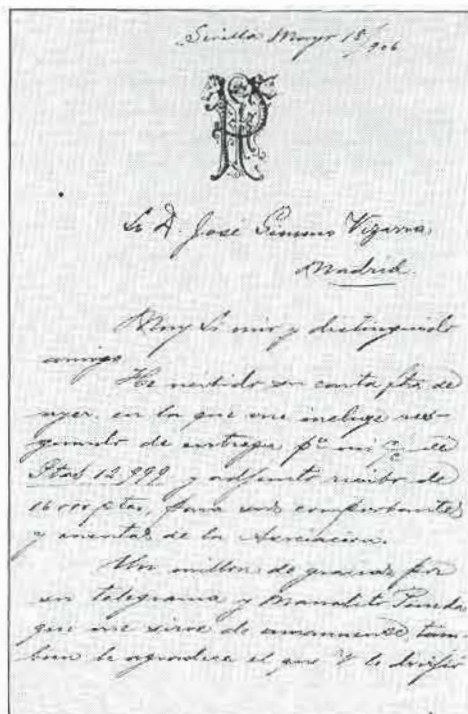 Sevilla Mayo 18/906
Sr D. José Gimeno Vizarra
Madrid
Muy Sr mio y distinguido
amigo
He recibido su carta fha de
ayer en la que me incluye res-
guardo de entrega pr mi c/c de
Ptas 12.999 y adjunto recibo de
16 000 ptas, para sus comprobantes
y cuentas de la Asociacion.
Un millon de gracias por
su telegrama y Manolito Pineda
que me sirve de amanuense tam-
bien le agradece el que V le dirijió